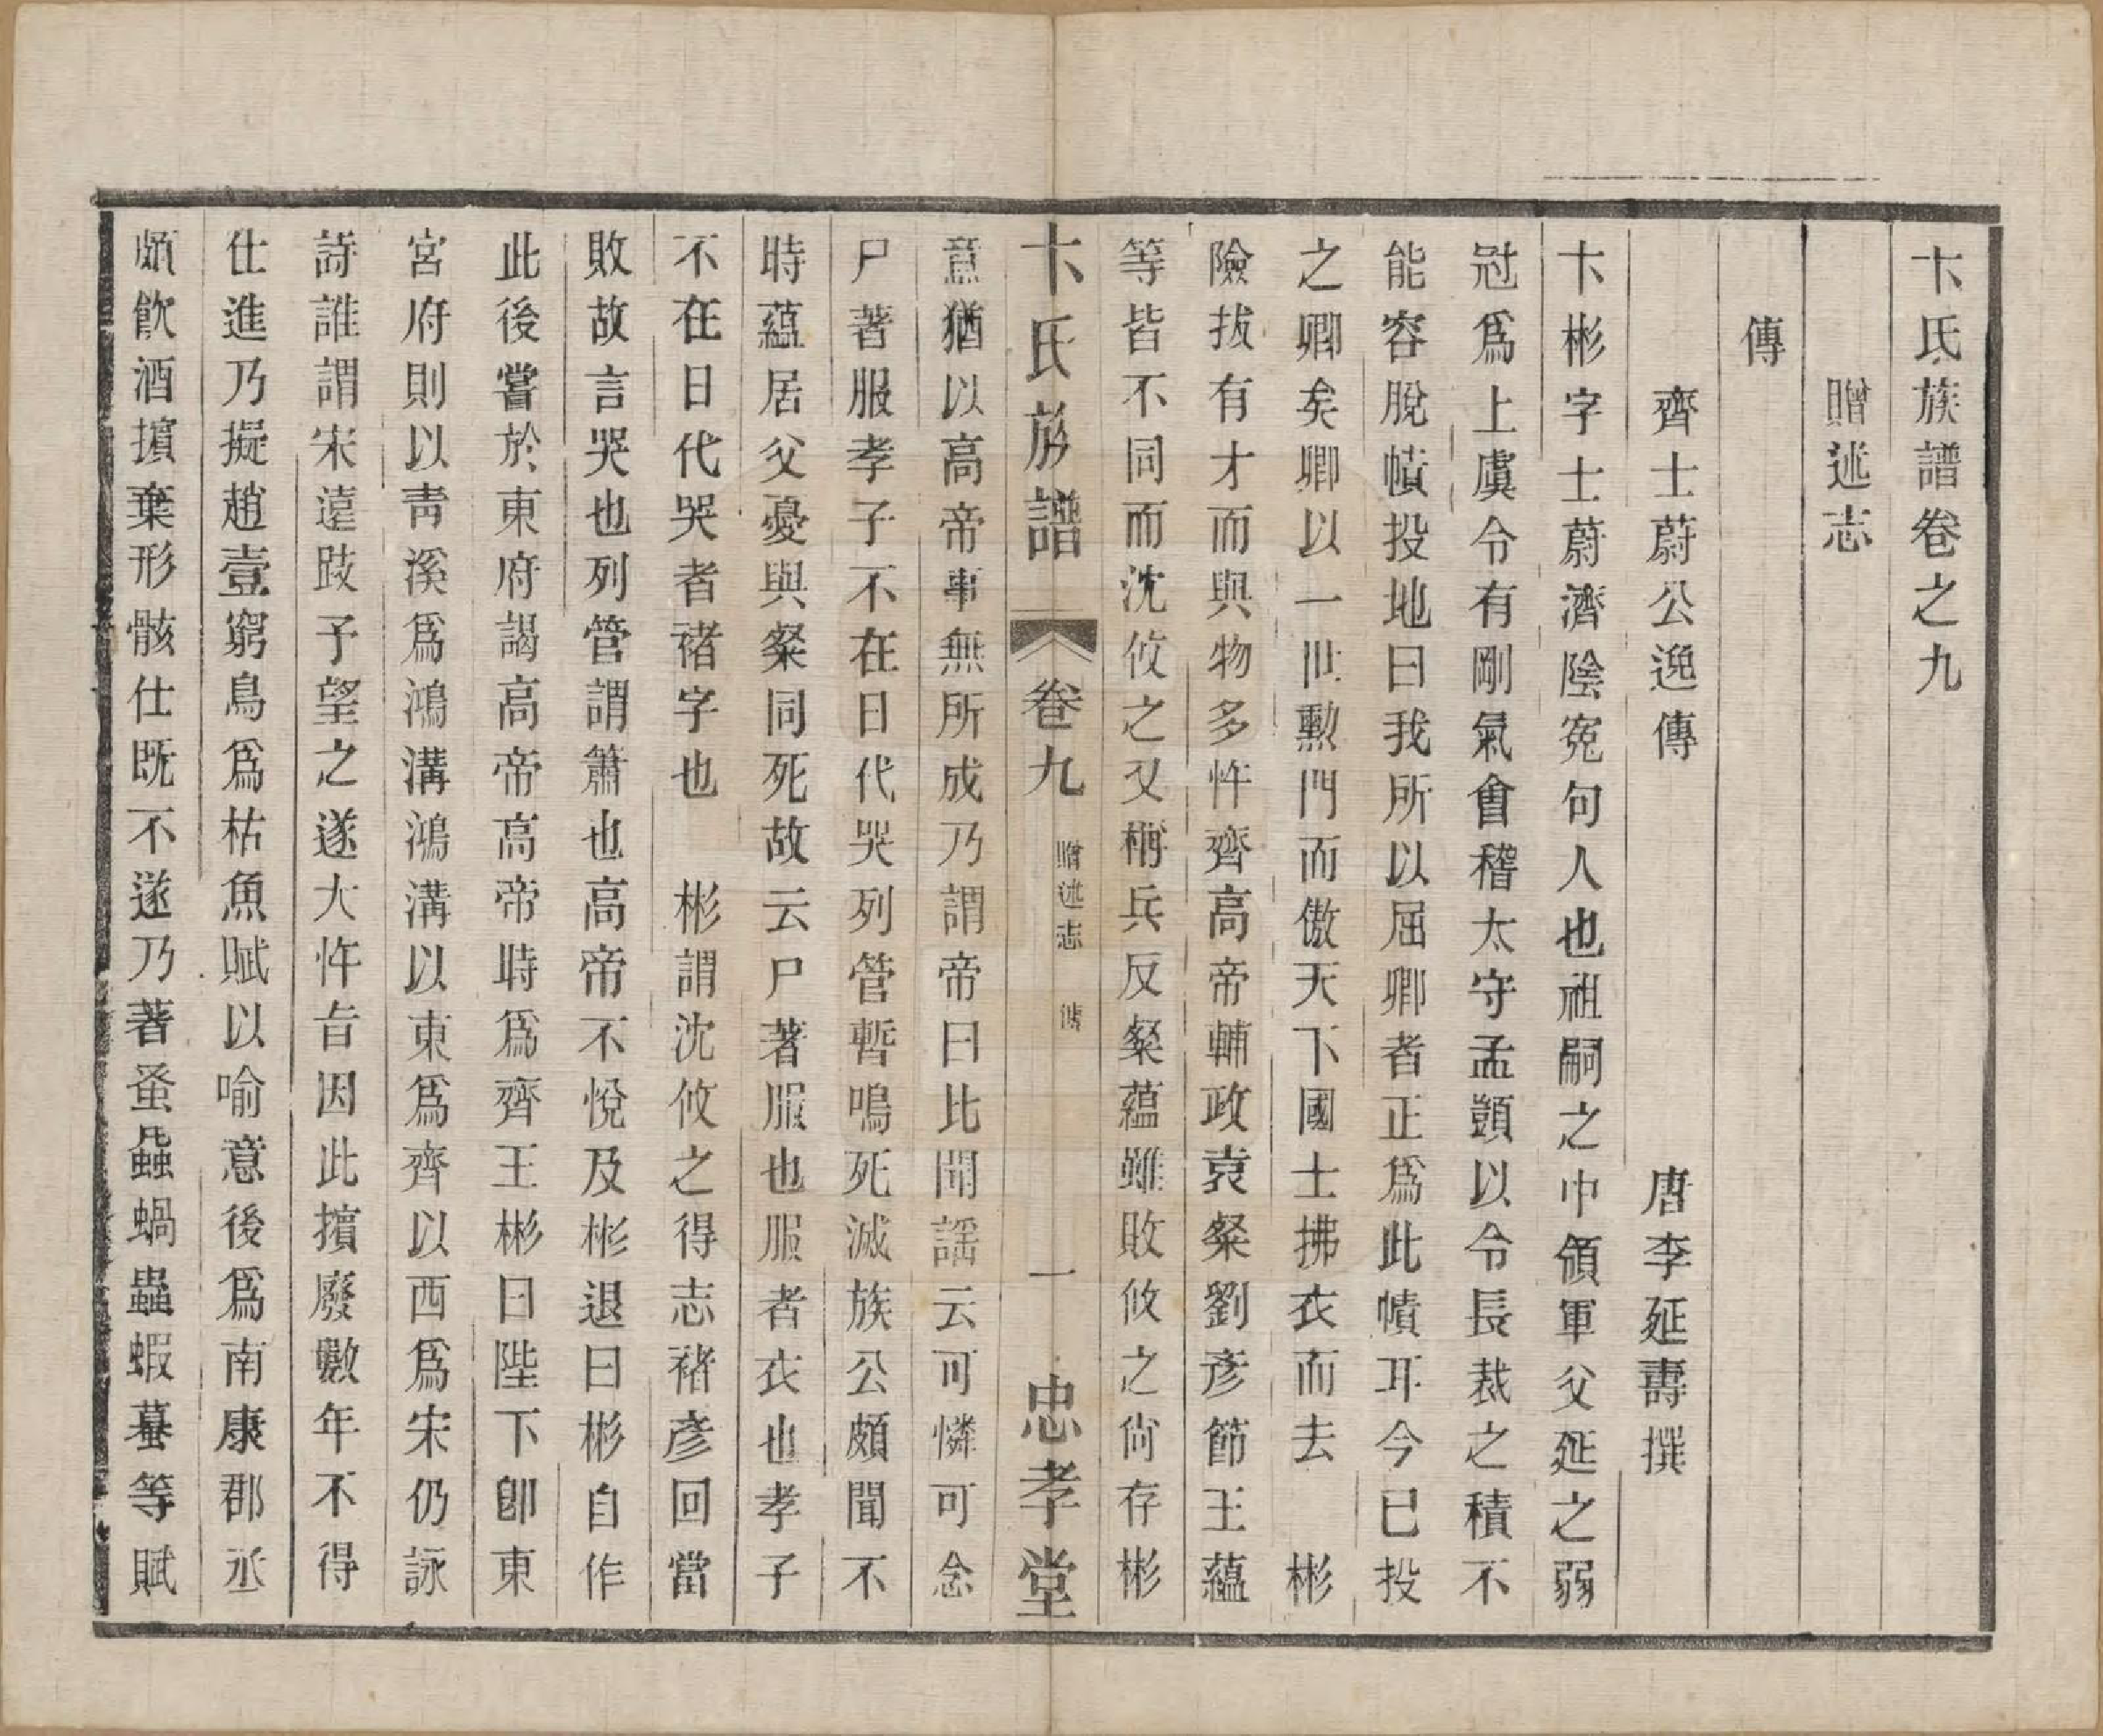 卞氏族譜卷之九
贈述志
傳
齊士蔚公逸傳 唐李延壽撰
卞彬字士蔚濟陰寃句人也祖嗣之中領軍父延之弱
冠爲上虞令有剛氣會稽太守孟顗以令長裁之積不
能容脫幘投地曰我所以屈卿者正爲此幘耳今已投
之卿矣卿以一世勳門而傲天下國士拂衣而去 彬
險拔有才而與物多忤齊高帝輔政袁粲劉彥節王蘊
等皆不同而沈攸之又稱兵反粲蘊雖敗攸之尙存彬
卞氏族譜 卷九 贈述志 傳 一 忠孝堂
意猶以高帝事無所成乃謂帝曰比聞謡云可憐可念
尸著服孝子不在日代哭列管暫鳴死滅族公頗聞不
時蘊居父憂與粲同死故云尸著服也服者衣也孝子
不在日代哭者褚字也 彬謂沈攸之得志褚彥回當
敗故言哭也列管謂簫也高帝不悅及彬退曰彬自作
此後嘗於東府謁高帝高帝時爲齊王彬曰陛下卽東
宮府則以靑溪爲鴻溝鴻溝以東爲齊以西爲宋仍詠
詩誰謂宋遠跂予望之遂大忤旨因此擯廢數年不得
仕進乃擬趙壹窮鳥爲枯魚賦以喻意後爲南康郡丞
頗飮酒擯棄形骸仕既不遂乃著蚤蝨蝸蟲蝦蟇等賦